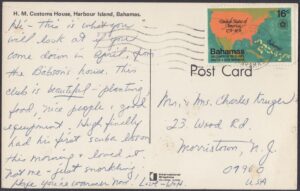 H. M. Customs House, Harbour Island, Bahamas.
Hi - This is what you
will look at if you
come down in April, from
the Babson's house. This
club is beautiful - planting,
food, nice people, good
equipment. Hugh finally
had his first scuba lesson
this morning & loved it.
Not me - just snorkling.
Hope you're warmer now.
United States of America
1776-1976
16c
Bahamas
Post Card
Mr. & Mrs. Charles Kruger
23 Wood Rd.
Morristown, N.J.
07960
USA